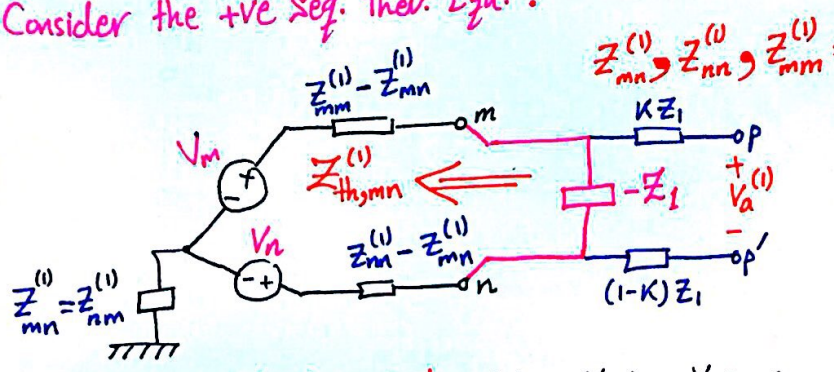 Consider the +ve Seq. Thev. Equ.
Z_mn^(1), Z_nn^(1), Z_mm^(1)
Z_mm^(1) - Z_mn^(1)
m
KZ_1
p
V_m
+
-
Z_th,mn^(1)
-Z_1
+
V_a^(1)
-
V_n
- +
Z_nn^(1) - Z_mn^(1)
n
p'
(1-K) Z_1
Z_mn^(1) = Z_nm^(1)